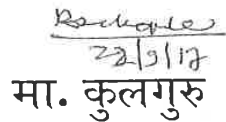 22/9/17
मा. कुलगुरु